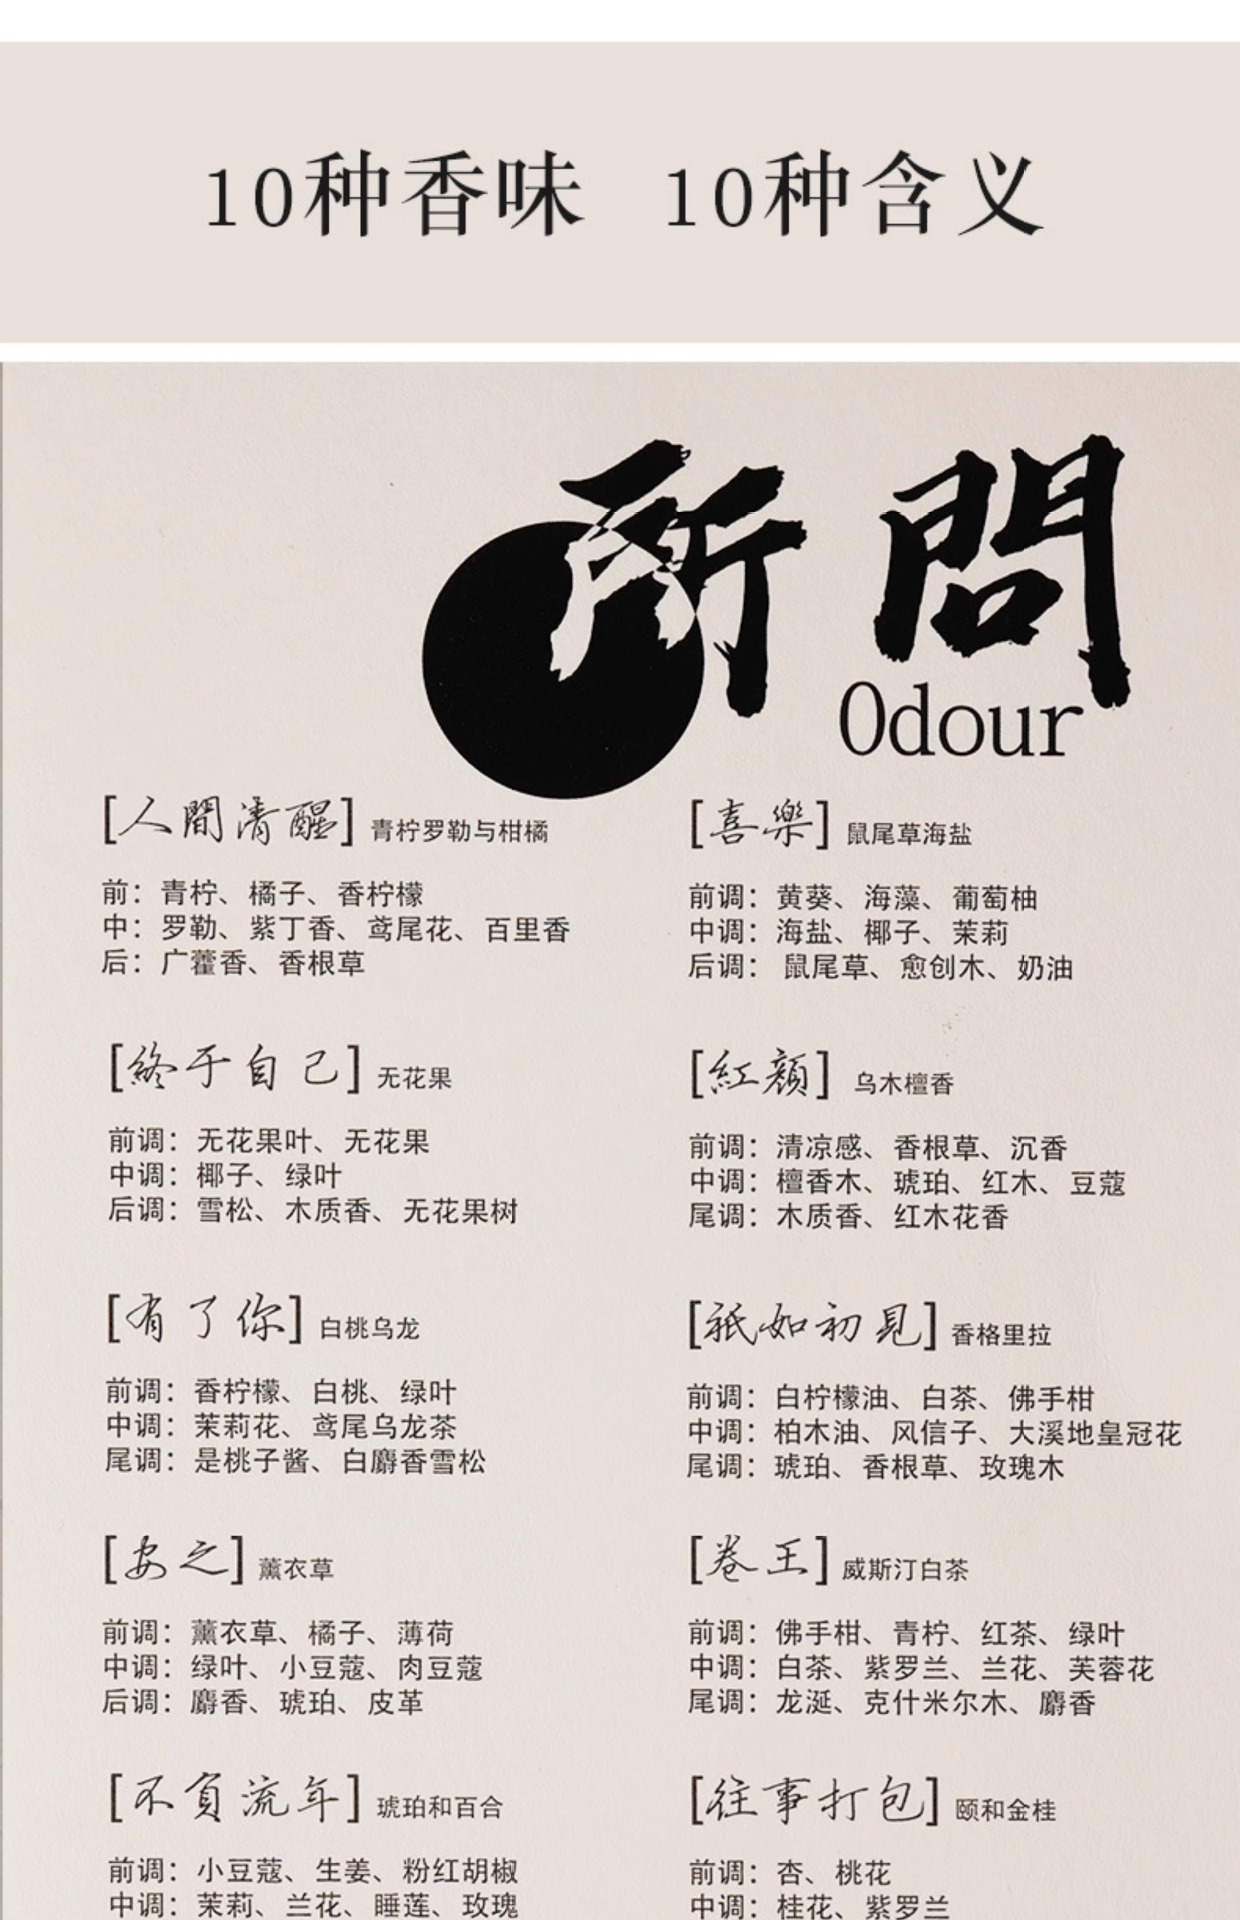 10种香味 10种含义
所問
Odour
[人間清醒] 青柠罗勒与柑橘
前：青柠、橘子、香柠檬
中：罗勒、紫丁香、鸢尾花、百里香
后：广藿香、香根草
[終于自己] 无花果
前调：无花果叶、无花果
中调：椰子、绿叶
后调：雪松、木质香、无花果树
[有了你] 白桃乌龙
前调：香柠檬、白桃、绿叶
中调：茉莉花、鸢尾乌龙茶
尾调：是桃子酱、白麝香雪松
[安之] 薰衣草
前调：薰衣草、橘子、薄荷
中调：绿叶、小豆蔻、肉豆蔻
后调：麝香、琥珀、皮革
[不負流年] 琥珀和百合
前调：小豆蔻、生姜、粉红胡椒
中调：茉莉、兰花、睡莲、玫瑰
[喜樂] 鼠尾草海盐
前调：黄葵、海藻、葡萄柚
中调：海盐、椰子、茉莉
后调：鼠尾草、愈创木、奶油
[紅顏] 乌木檀香
前调：清凉感、香根草、沉香
中调：檀香木、琥珀、红木、豆蔻
尾调：木质香、红木花香
[祇如初見] 香格里拉
前调：白柠檬油、白茶、佛手柑
中调：柏木油、风信子、大溪地皇冠花
尾调：琥珀、香根草、玫瑰木
[卷王] 威斯汀白茶
前调：佛手柑、青柠、红茶、绿叶
中调：白茶、紫罗兰、兰花、芙蓉花
尾调：龙涎、克什米尔木、麝香
[往事打包] 颐和金桂
前调：杏、桃花
中调：桂花、紫罗兰